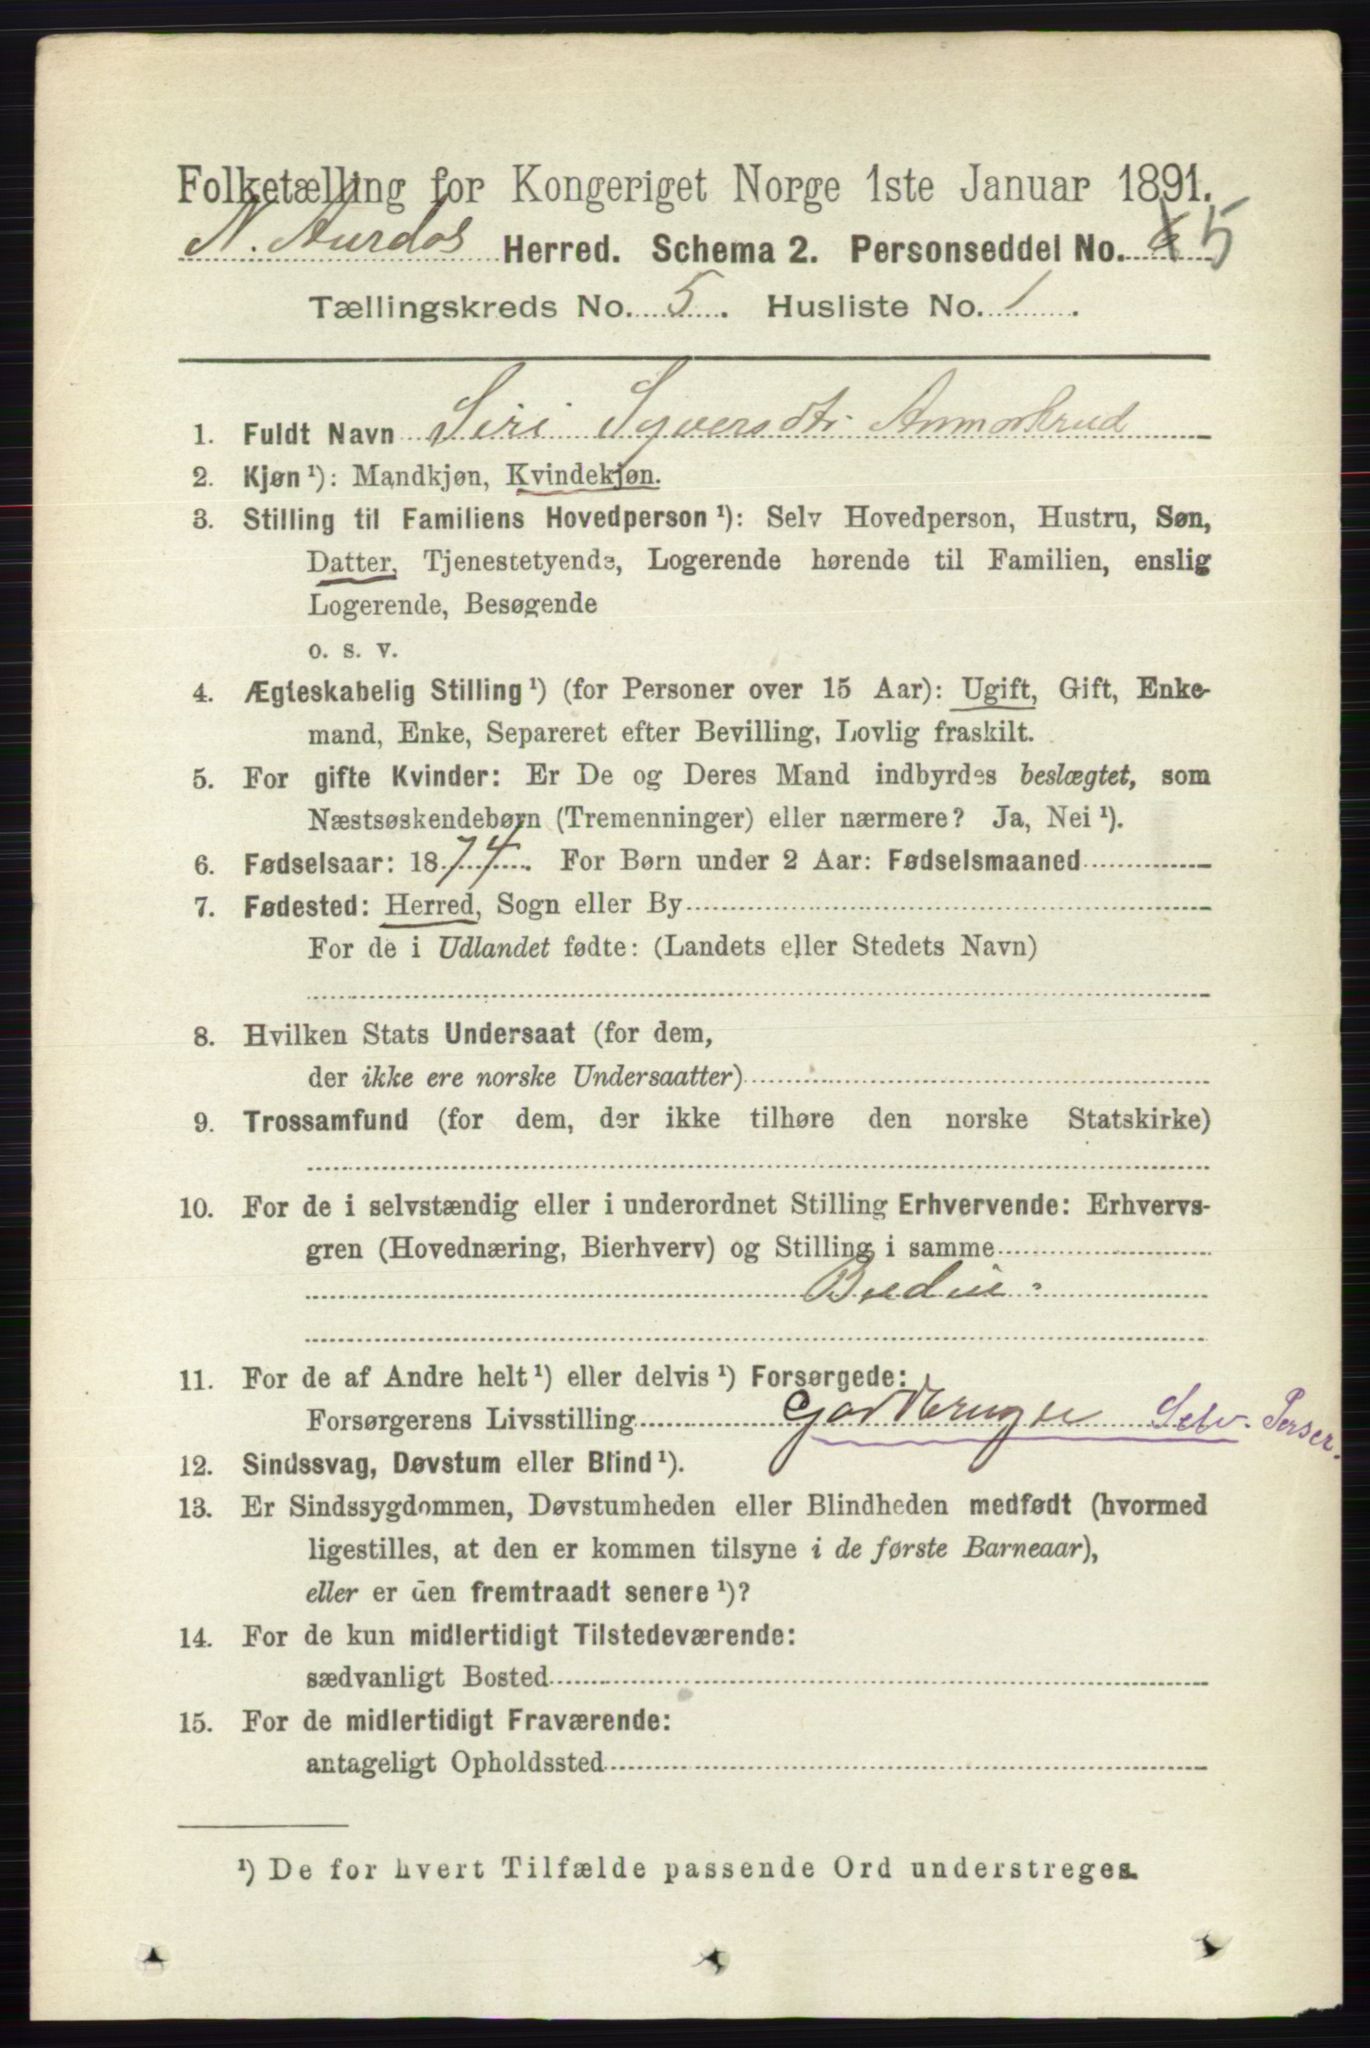 Folketælling for Kongeriget Norge 1ste Januar 1891.
N. Aurdal Herred. Schema 2. Personseddel No. 6 5
Tællingskreds No. 5. Husliste No. 1.
1. Fuldt Navn Siri Syversdtr Anmarkrud
2. Kjøn ¹): Mandkjøn, Kvindekjøn.
3. Stilling til Familiens Hovedperson ¹): Selv Hovedperson, Hustru, Søn,
Datter, Tjenestetyende, Logerende hørende til Familien, enslig
Logerende, Besøgende
o. s. v.
4. Ægteskabelig Stilling ¹) (for Personer over 15 Aar): Ugift, Gift, Enke-
mand, Enke, Separeret efter Bevilling, Lovlig fraskilt.
5. For gifte Kvinder: Er De og Deres Mand indbyrdes beslægtet, som
Næstsøskendebørn (Tremenninger) eller nærmere? Ja, Nei ¹).
6. Fødselsaar: 1874. For Børn under 2 Aar: Fødselsmaaned
7. Fødested: Herred, Sogn eller By
For de i Udlandet fødte: (Landets eller Stedets Navn)
8. Hvilken Stats Undersaat (for dem,
der ikke ere norske Undersaatter)
9. Trossamfund (for dem, der ikke tilhøre den norske Statskirke)
10. For de i selvstændig eller i underordnet Stilling Erhvervende: Erhvervs-
gren (Hovednæring, Bierhverv) og Stilling i samme
Budeie
11. For de af Andre helt ¹) eller delvis ¹) Forsørgede:
Forsørgerens Livsstilling Gardbruger Selv. Perser.
12. Sindssvag, Døvstum eller Blind ¹).
13. Er Sindssygdommen, Døvstumheden eller Blindheden medfødt (hvormed
ligestilles, at den er kommen tilsyne i de første Barneaar),
eller er den fremtraadt senere ¹)?
14. For de kun midlertidigt Tilstedeværende:
sædvanligt Bosted
15. For de midlertidigt Fraværende:
antageligt Opholdssted
¹) De for hvert Tilfælde passende Ord understreges.